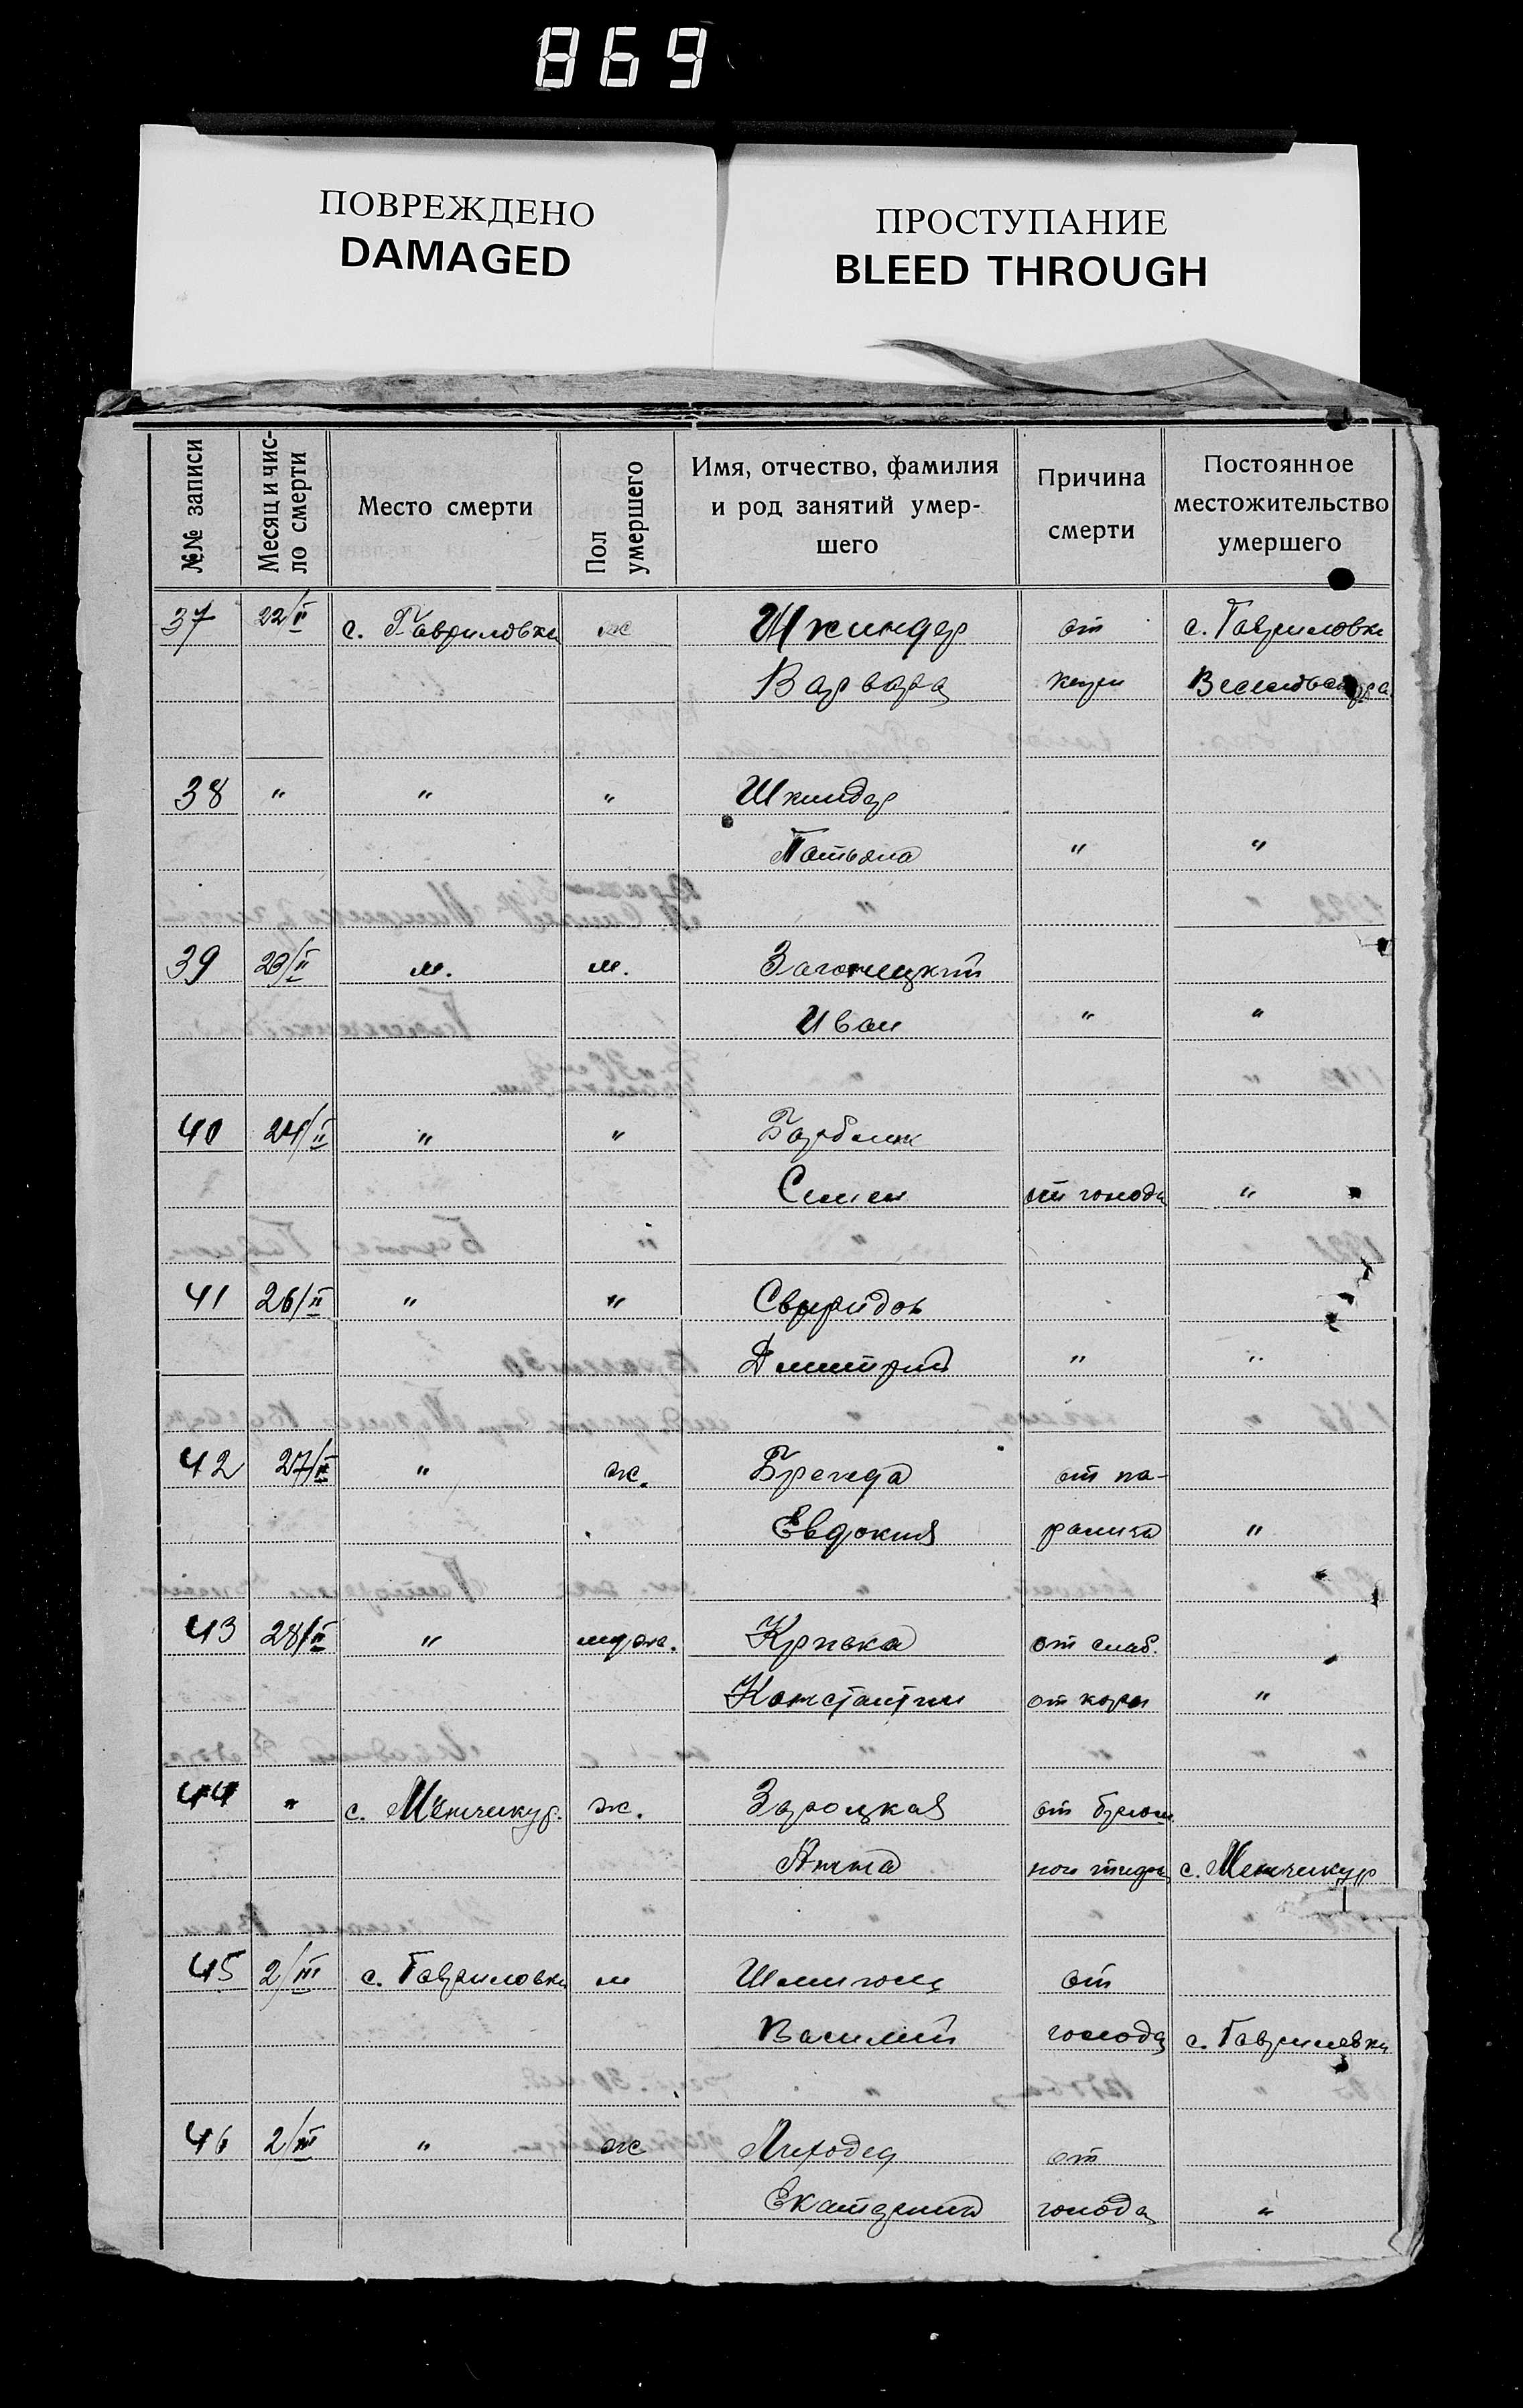 869
ПОВРЕЖДЕНО
DAMAGED
ПРОСТУПАНИЕ
BLEED THROUGH
№№ записи
Месяц и чис-
ло смерти
Место смерти
Пол
умершего
Имя, отчество, фамилия
и род занятий умер-
шего
Причина
смерти
Постоянное
местожительство
умершего
37 22/II с. Гавриловка ж Шкиндер от с. Гавриловка
Варвара
38 " " " Шкиндер
Татьяна " "
39 23/II м. м.
Иван " "
40 24/II " "
Семен от голода "
41 26/II " " Свиридов
Дмитрий " "
42 27/II " ж. от па-
Евдокия ралича "
43 28/II " муж. Кривка от слаб.
Константин от кори "
44 " с. Менчикур. ж. Зароцкая от брюш
Анна ного тифа с. Менчикур
45 2/III с. Гавриловка м от
Василий голода с. Гавриловка
46 2/III " ж Лиходед от
Екатерина голода "